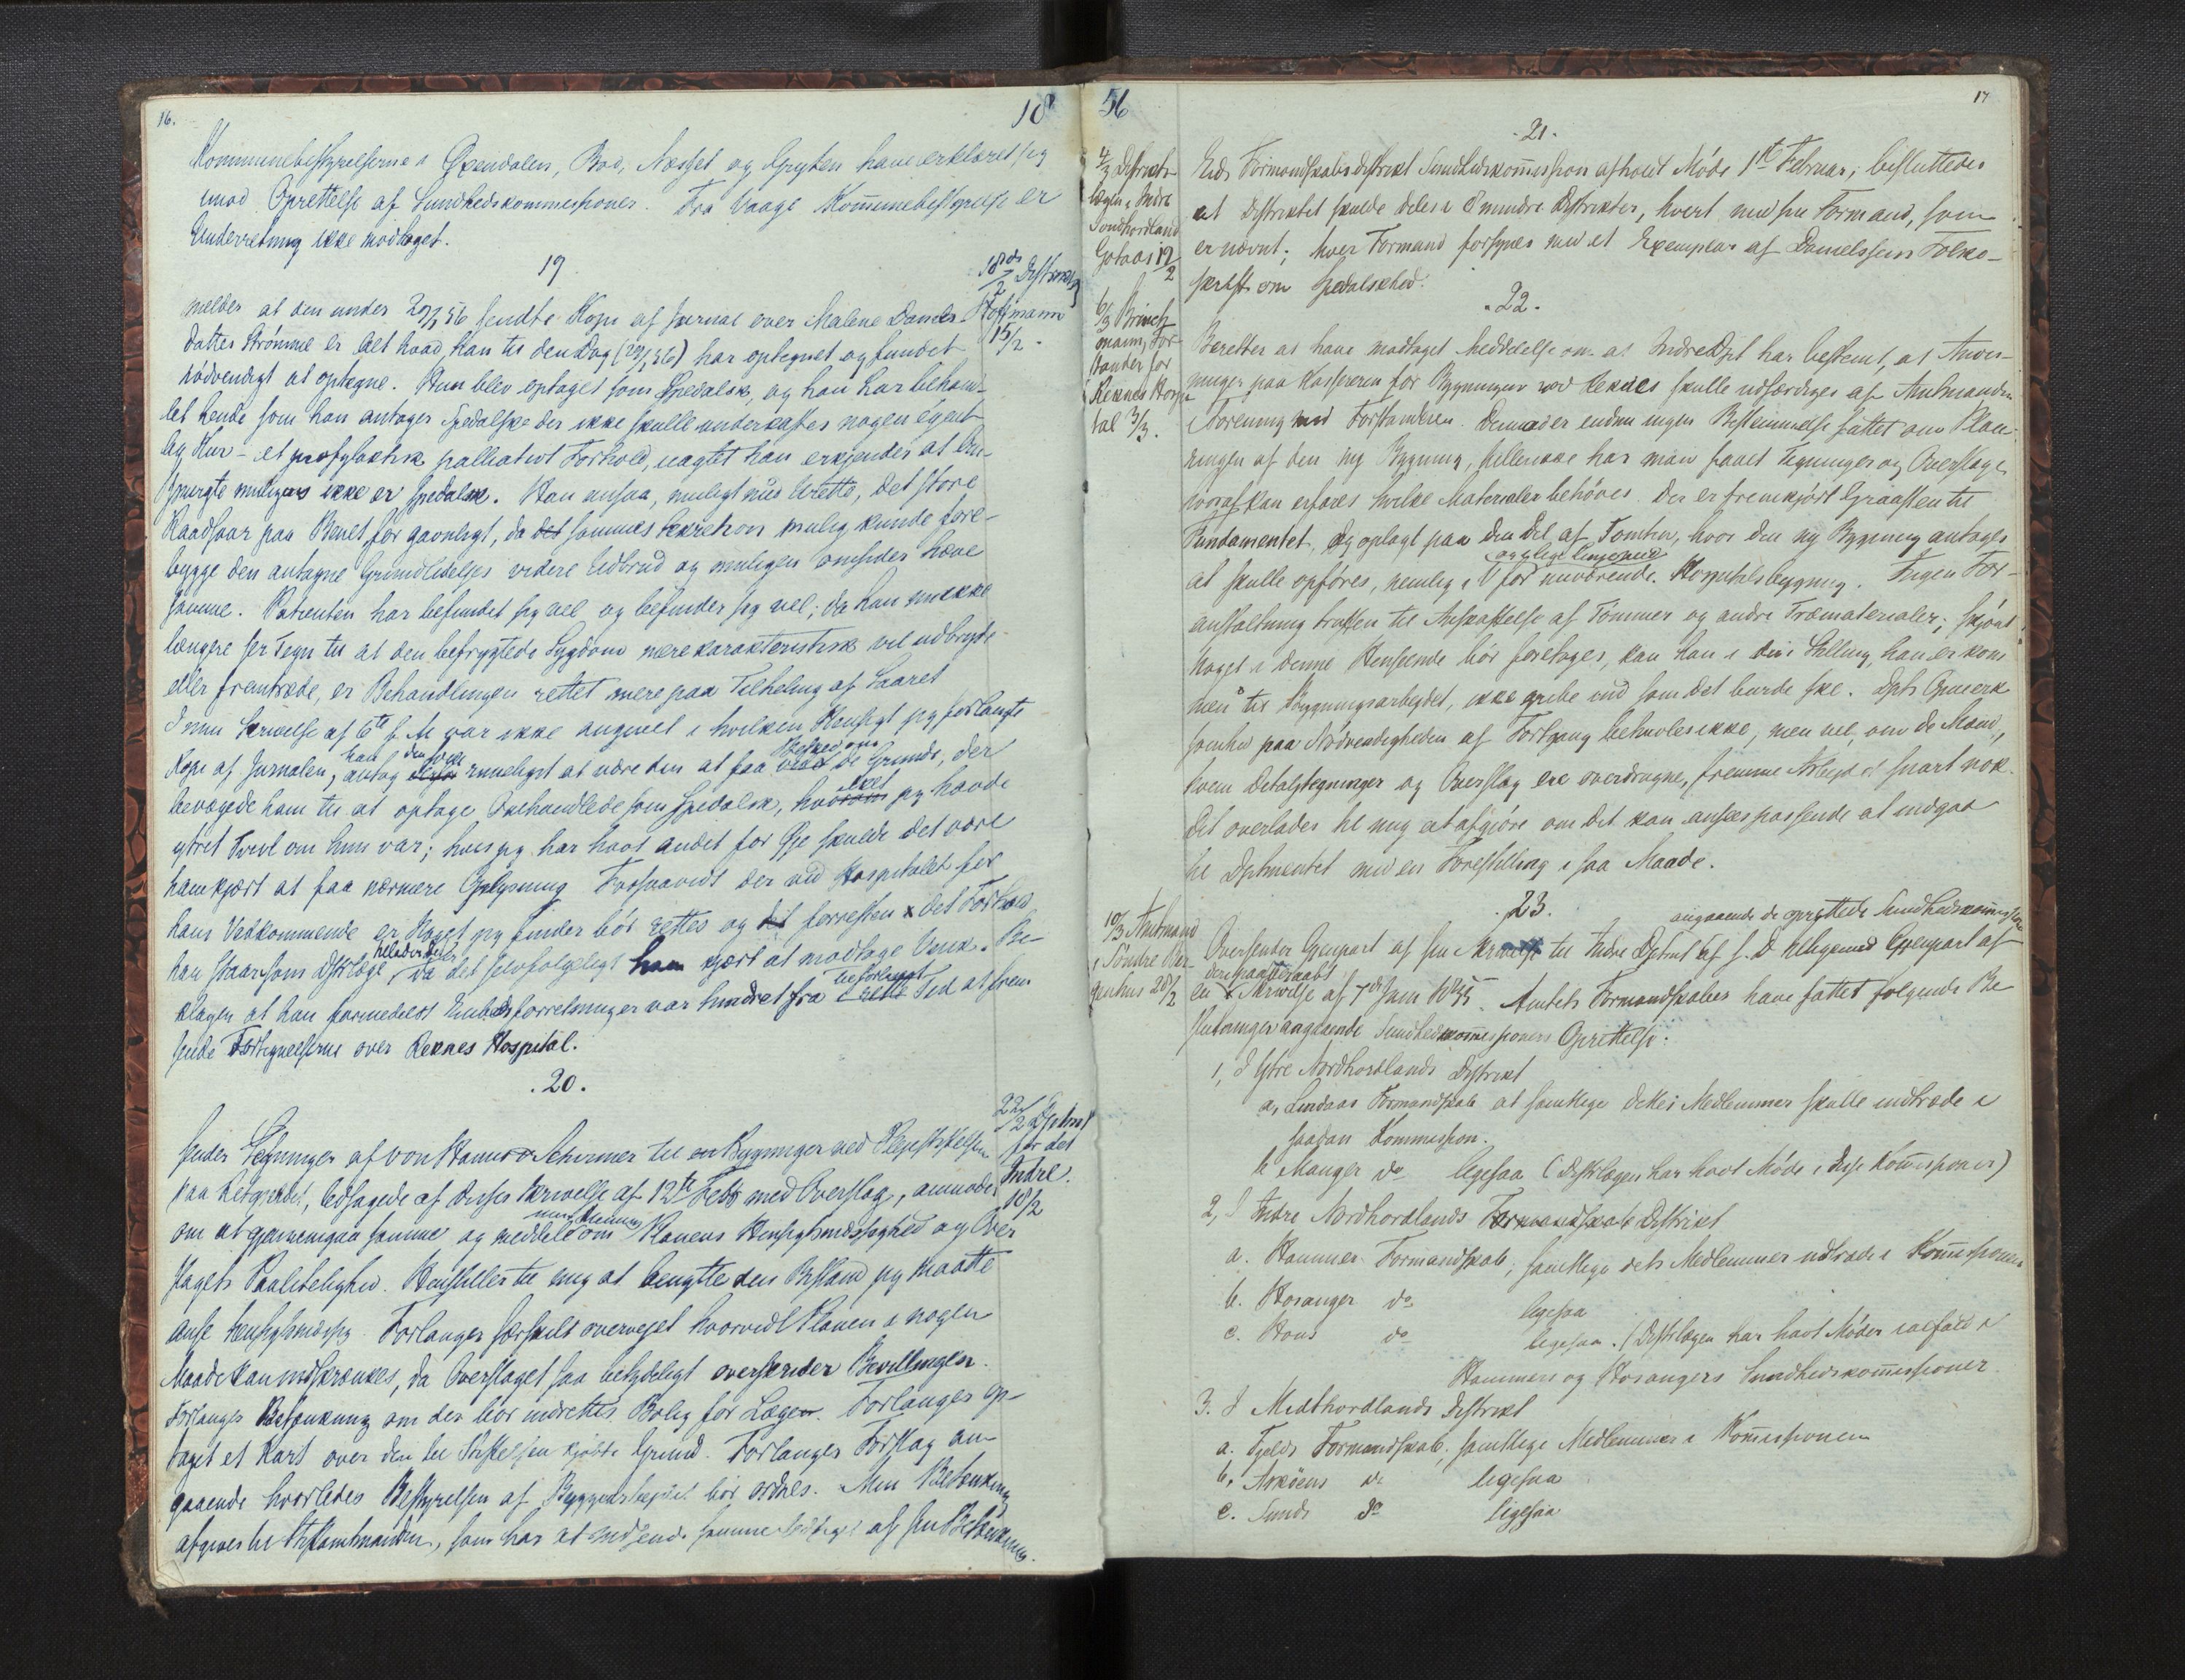 16.
18
Kommunebestyrelserne i Øxendalen, Bod, Næsset og Gryten have erklæret sig
imod Oprettelse af Sundhedskommissioner. Fra Vaage Kom̄unebestyrelse er
Underretning ikke modtaget.
19
18de/2 Distriktslg
Hoffmann
15/2.
melder at den under 29/1 56 sendte Kopi af Jurnal over Malene Daniels-
datter Strömme er Alt hvad, Han til den Dag (29/1 56) har optegnet og fundet
nödvendigt at optegne. Hun blev optaget som Spedalsk, og han har behand-
let hende som han antager Spedalske der ikke skulle underkastes nogen egent-
lig Kur - et profylaktisk palliativt Forhold, uagtet han erkjender at An-
spurgte muligens ikke er Spedalsk. Han ansaa, muligt med Urette, det store
Raadsaar paa Benet for gavnligt, da det sammes Sekretion mulig kunde fore-
bygge den antagne Grundlidelses videre Udbrud og muligen omsider hæve
samme. Patienten har befundet sig vel og befinder sig vel; da han nu ikke
længere ser Tegn til at den befrygtede Sygdom mere karakteristisk vil udbryde
eller fremtræde, er Behandlingen rettet mere paa Tilheling af Saaret
I min Skrivelse af 6te f. M. var ikke angivet i hvilken Hensigt jeg forlangte
Kopi af Jurnalen, han antog den rimeligst at være den at faa Besked om de Grunde, der
bevægede ham til at optage Omhandlede som Spedalsk, hvilket jeg havde
ytret Tvivl om hun var; hvis jeg har havt andet for Øje skulde det være
ham kjært at faa nærmere Oplysning Forsaavidt der ved Hospitalet for
hans Vedkommende er Noget jeg finder bör rettes og forresten i det Forhold
han staar som Dstrlæge, da det selvfølgeligt ham kjært at modtage Vink. Be-
klager at han formedelst Embedsforretninger var hindret fra i rette Tid at frem
sende Fortegnelserne over Reknes Hospital.
.20.
22/2 Dptmt
for det
Indre.
18/2
sender Tegninger af von Hanno & Schirmer til Bygninger ved Plejestiftelsen
paa Reitgjerdet, ledsagede af disses Skrivelse af 12te Febr med Overslag, anmoder
om at gjennemgaa samme og meddele min Mening om Planens Hensigtsmæssighed og Over
slagets Paalitelighed. Henstilles til mig at benytte den Bistand jeg maatte
anse hensigtsmæssig. Forlanger særskilt overvejet hvorvidt Planen i nogen
Maade kan indskrænkes, da Overslaget saa betydeligt overskrider Bevillingen.
Forlanger Betænkning om der bör indrettes Bolig for Lægen. Forlanger Op-
taget et Kart over den til Stiftelsen kjöbte Grund. Forlanger Forslag an-
gaaende hvorledes Bestyrelsen af Byggearbejdet bör ordnes. Min Betænkning
afgives til Stiftamtmanden, som har at indsende samme ledsaget af sin Betænkning.
56
17
.21.
4/3 Distrikts-
lægen i Indre
Söndhordland
Gotaas 17/2
Eids Formandskabsdistrikt Sundhedskom̄ission afholdt Möde 1ste Februar; besluttedes
at Distriktet skulde deles i 8 mindre Distrikter, hvert med sin Formand, som
er nævnt; hver Formand forsynes med et Exemplar af Danielssens Folke-
skrift om Spedalskhed.
.22.
6/3 Brinch-
mann, For-
stander for
Reknes Hospi
tal 3/3.
Beretter at have modtaget Meddelelse om at Indre Dpt har bestemt, at Anvis-
ninger paa Kassereren for Bygningen ved Reknes skulle udfærdiges af Amtmanden
i Forening med Forstanderen. Dermed er endnu ingen Bestemmelse fattet om Plan-
ningen af den ny Bygning, hellerikke har man faaet Tegninger og Overslag,
hvoraf kan erfares hvilke Materialer behöves. Der er fremkjört Graasten til
Fundamentet, og oplagt paa den Del af Tomten, hvor den ny Bygning antages
at skulle opföres, nemlig i V for nuværende Hospitalsbygning. Ingen For-
anstaltning truffen til Anskaffelse af Tömmer og andre Træmaterialer; skjönt
Noget i denne Henseende bör foretages, kan han i den Stilling, han er kom
men til Bygningsarbejdet, ikke gribe ind som det burde ske. Dpts Opmærk
somhed paa Nödvendigheden af Fortgang betvivles ikke, men vel, om de Mænd,
hvem Detaljtegninger og Overslag ere overdragne, fremme Arbejdet snart nok.
Det overlades til mig at afgjöre om det kan ansees passende at indgaa
til Dptmentet med en Forestilling i saa Maade.
.23.
10/3 Amtmand
i Söndre Ber-
genhus 28/2
angaaende de oprettede Sundhedskom̄issioner
Oversender Gjenpart af sin Skrivelse til Indre Dptmt af s. D. tilligemed Gjenpart af
en Skrivelse af 7de Juni 1855. Amtets Formandskaber have fattet fölgende Be
slutninger angaaende Sundhedskom̄issioners Oprettelse:
1, I Ytre Nordhordlands Distrikt
a, Lindaas Formandskab at samtlige dettes Medlemmer skulle indtræde i
saadan Kommission.
b Manger do ligesaa (Distrlægen har havt Möde i disse Kom̄issioner)
2, I Indre Nordhordlands Formandskabs Distrikt
a. Hammer Formandskab; samtlige dets Medlemmer indtræde i Kom̄issionen
b. Hosanger do ligesaa
c. Hous do ligesaa. (Distrlægen har havt Möder ialfald i
Hammers og Hosangers Sundhedskom̄issioner.
3. I Midthordlands Distrikt
a. Fjelds Formandskab, samtlige Medlemmer i Kom̄issionen
b. Asköens do ligesaa
c. Sunds do ligesaa